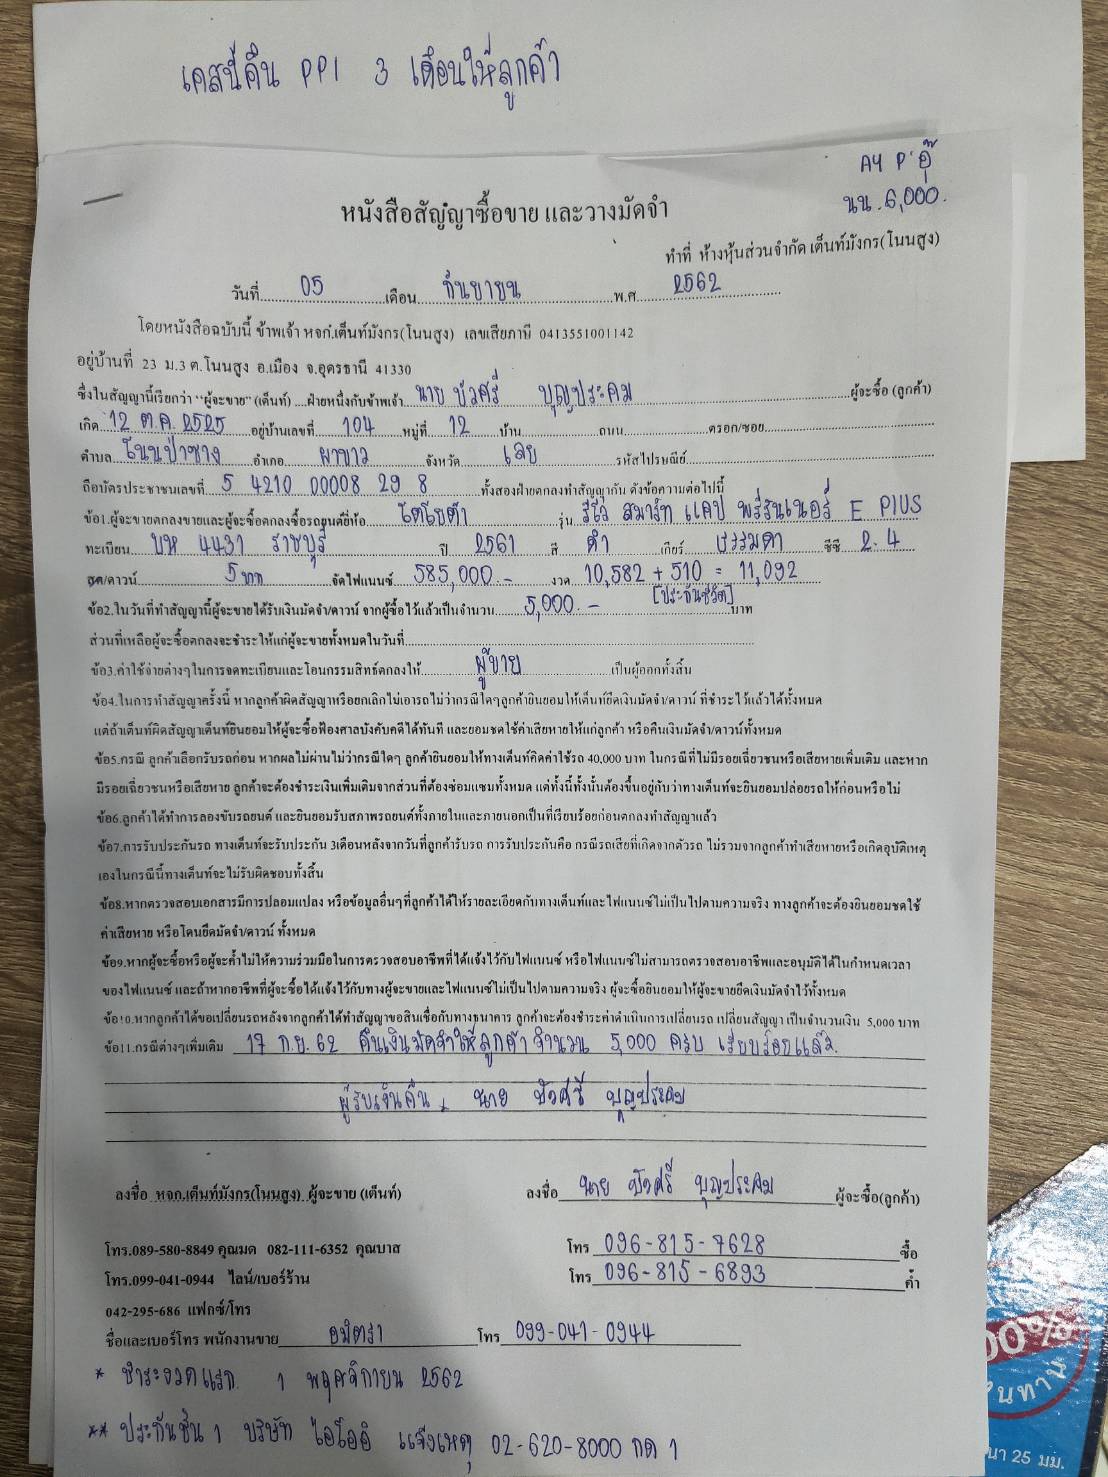 เคสนี้คืน PPI 3 เดือนให้ลูกค้า
A4 P'อุ๊
นน. 6,000.
หนังสือสัญญาซื้อขาย และวางมัดจำ
ทำที่ ห้างหุ้นส่วนจำกัด เต็นท์มังกร(โนนสูง)
วันที่ 05 เดือน กันยายน พ.ศ 2562
โดยหนังสือฉบับนี้ ข้าพเจ้า หจก.เต็นท์มังกร(โนนสูง) เลขเสียภาษี 0413551001142
อยู่บ้านที่ 23 ม.3 ต.โนนสูง อ.เมือง จ.อุดรธานี 41330
ซึ่งในสัญญานี้เรียกว่า "ผู้จะขาย" (เต็นท์) ....ฝ่ายหนึ่งกับข้าพเจ้า นาย บัวศรี บุญประคม ผู้จะซื้อ (ลูกค้า)
เกิด 12 ต.ค. 2525 อยู่บ้านเลขที่ 104 หมู่ที่ 12 บ้าน ถนน ตรอก/ซอย
ตำบล โนนป่าซาง อำเภอ ผาขาว จังหวัด เลย รหัสไปรษณีย์
ถือบัตรประชาชนเลขที่ 5 4210 00008 29 8 ทั้งสองฝ่ายตกลงทำสัญญากัน ดังข้อความต่อไปนี้
ข้อ1.ผู้จะขายตกลงขายและผู้จะซื้อตกลงซื้อรถยนต์ยี่ห้อ โตโยต้า รุ่น รีโว่ สมาร์ท แคป พรีรันเนอร์ E PLUS
ทะเบียน บห 4431 ราชบุรี ปี 2561 สี ดำ เกียร์ ธรรมดา ซีซี 2.4
สด/ดาวน์ 5 บาท จัดไฟแนนซ์ 585,000.- งวด 10,582 + 510 = 11,092
[ประกันชีวิต]
ข้อ2.ในวันที่ทำสัญญานี้ผู้จะขายได้รับเงินมัดจำ/ดาวน์ จากผู้ซื้อไว้แล้วเป็นจำนวน 5,000.- บาท
ส่วนที่เหลือผู้จะซื้อตกลงจะชำระให้แก่ผู้จะขายทั้งหมดในวันที่
ข้อ3.ค่าใช้จ่ายต่างๆในการจดทะเบียนและโอนกรรมสิทธิ์ตกลงให้ ผู้ขาย เป็นผู้ออกทั้งสิ้น
ข้อ4.ในการทำสัญญาครั้งนี้ หากลูกค้าผิดสัญญาหรือยกเลิกไม่เอารถไม่ว่ากรณีใดๆลูกค้ายินยอมให้เต็นท์ยึดเงินมัดจำ/ดาวน์ ที่ชำระไว้แล้วได้ทั้งหมด
แต่ถ้าเต็นท์ผิดสัญญาเต็นท์ยินยอมให้ผู้จะซื้อฟ้องศาลบังคับคดีได้ทันที และยอมชดใช้ค่าเสียหายให้แก่ลูกค้า หรือคืนเงินมัดจำ/ดาวน์ทั้งหมด
ข้อ5.กรณี ลูกค้าเลือกรับรถก่อน หากผลไม่ผ่านไม่ว่ากรณีใดๆ ลูกค้ายินยอมให้ทางเต็นท์คิดค่าใช้รถ 40,000 บาท ในกรณีที่ไม่มีรอยเฉี่ยวชนหรือเสียหายเพิ่มเติม และหาก
มีรอยเฉี่ยวชนหรือเสียหาย ลูกค้าจะต้องชำระเงินเพิ่มเติมจากส่วนที่ต้องซ่อมแซมทั้งหมด แต่ทั้งนี้ทั้งนั้นต้องขึ้นอยู่กับว่าทางเต็นท์จะยินยอมปล่อยรถให้ก่อนหรือไม่
ข้อ6.ลูกค้าได้ทำการลองขับรถยนต์ และยินยอมรับสภาพรถยนต์ทั้งภายในและภายนอกเป็นที่เรียบร้อยก่อนตกลงทำสัญญาแล้ว
ข้อ7.การรับประกันรถ ทางเต็นท์จะรับประกัน 3เดือนหลังจากวันที่ลูกค้ารับรถ การรับประกันคือ กรณีรถเสียที่เกิดจากตัวรถ ไม่รวมจากลูกค้าทำเสียหายหรือเกิดอุบัติเหตุ
เองในกรณีนี้ทางเต็นท์จะไม่รับผิดชอบทั้งสิ้น
ข้อ8.หากตรวจสอบเอกสารมีการปลอมแปลง หรือข้อมูลอื่นๆที่ลูกค้าได้ให้รายละเอียดกับทางเต็นท์และไฟแนนซ์ไม่เป็นไปตามความจริง ทางลูกค้าจะต้องยินยอมชดใช้
ค่าเสียหาย หรือโดนยึดมัดจำ/ดาวน์ ทั้งหมด
ข้อ9.หากผู้จะซื้อหรือผู้จะค้ำไม่ให้ความร่วมมือในการตรวจสอบอาชีพที่ได้แจ้งไว้กับไฟแนนซ์ หรือไฟแนนซ์ไม่สามารถตรวจสอบอาชีพและอนุมัติได้ในกำหนดเวลา
ของไฟแนนซ์ และถ้าหากอาชีพที่ผู้จะซื้อได้แจ้งไว้กับทางผู้จะขายและไฟแนนซ์ไม่เป็นไปตามความจริง ผู้จะซื้อยินยอมให้ผู้จะขายยึดเงินมัดจำไว้ทั้งหมด
ข้อ10.หากลูกค้าได้ขอเปลี่ยนรถหลังจากลูกค้าได้ทำสัญญาขอสินเชื่อกับทางธนาคาร ลูกค้าจะต้องชำระค่าดำเนินการเปลี่ยนรถ เปลี่ยนสัญญา เป็นจำนวนเงิน 5,000 บาท
ข้อ11.กรณีต่างๆเพิ่มเติม 17 ก.ย. 62 คืนเงินมัดจำให้ลูกค้า จำนวน 5,000 ครบ เรียบร้อยแล้ว
ผู้รับเงินคืน นาย บัวศรี บุญประคม
ลงชื่อ หจก.เต็นท์มังกร(โนนสูง) ผู้จะขาย (เต็นท์) ลงชื่อ นาย บัวศรี บุญประคม ผู้จะซื้อ(ลูกค้า)
โทร.089-580-8849 คุณมด 082-111-6352 คุณบาส โทร 096-815-7628 ซื้อ
โทร.099-041-0944 ไลน์/เบอร์ร้าน โทร 096-815-6893 ค้ำ
042-295-686 แฟกซ์/โทร
ชื่อและเบอร์โทร พนักงานขาย อมิตรา โทร 099-041-0944
* ชำระงวดแรก 1 พฤศจิกายน 2562
** ประกันชั้น 1 บริษัท ไอโออิ แจ้งเหตุ 02-620-8000 กด 1
00%
นา 25 มม.